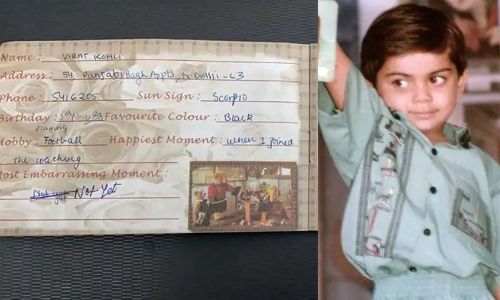 Name : VIRAT KOHLI
Address : Panjabi Bagh Appts N. Delhi - 63
Phone : 5416205 Sun Sign : Scorpio
Birthday : 5th Nov 88 Favourite Colour : Black
playing
Hobby : Football Happiest Moment : when I joined
the coaching
Most Embarrassing Moment :
Not Yet